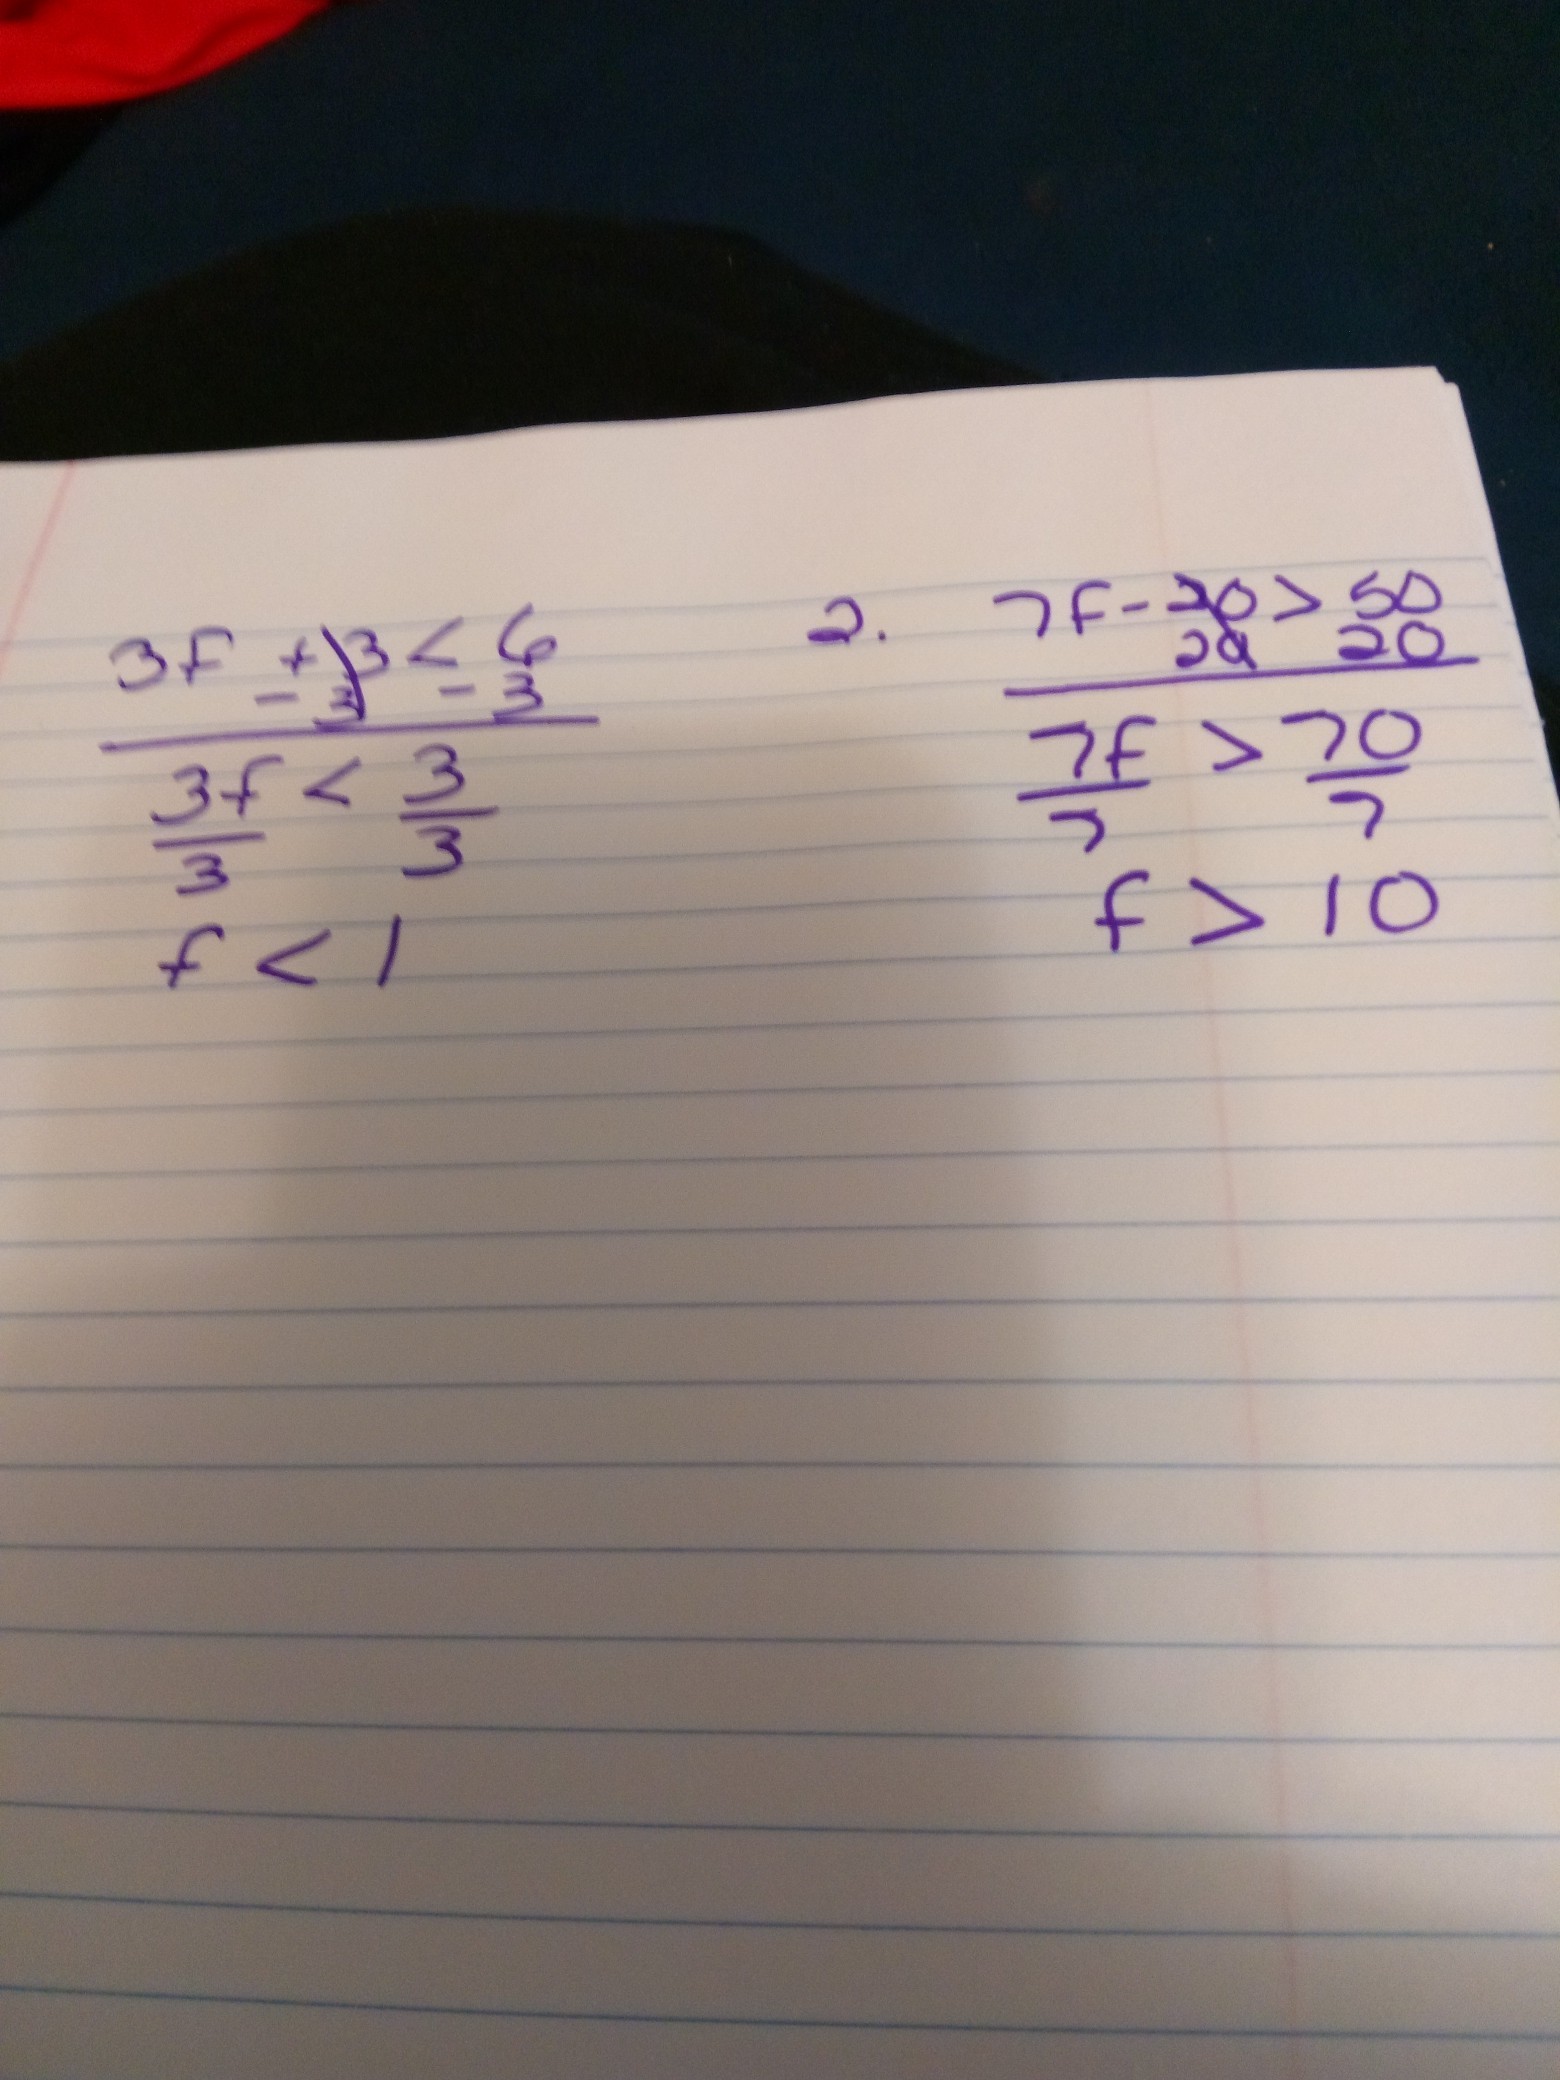 3f + 3 < 6
- 3 - 3
3f < 3
3 3
f < 1
2. 7f - 20 > 50
20 20
7f > 70
7 7
f > 10